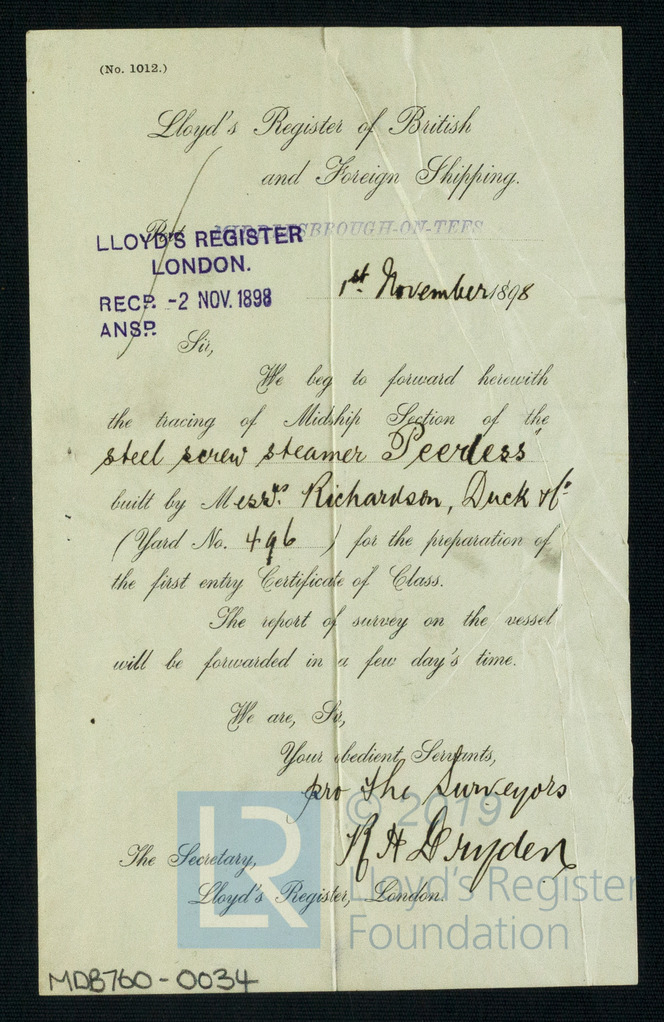 (No. 1012.)
Lloyd's Register of British
and Foreign Shipping.
Port MIDDLESBROUGH-ON-TEES
LLOYD'S REGISTER
LONDON.
RECD. -2 NOV. 1898
ANSD.
1st November 1898
Sir,
We beg to forward herewith
the tracing of Midship Section of the
steel screw steamer Peerless"
built by Messrs. Richardson, Duck & Co.
(Yard No. 496) for the preparation of
the first entry Certificate of Class.
The report of survey on the vessel
will be forwarded in a few day's time.
We are, Sir,
Your obedient Servants,
pro the Surveyors
R H Dryden
The Secretary,
Lloyd's Register, London.
© 2019
LR
Lloyd's Register
Foundation
MDB760-0034